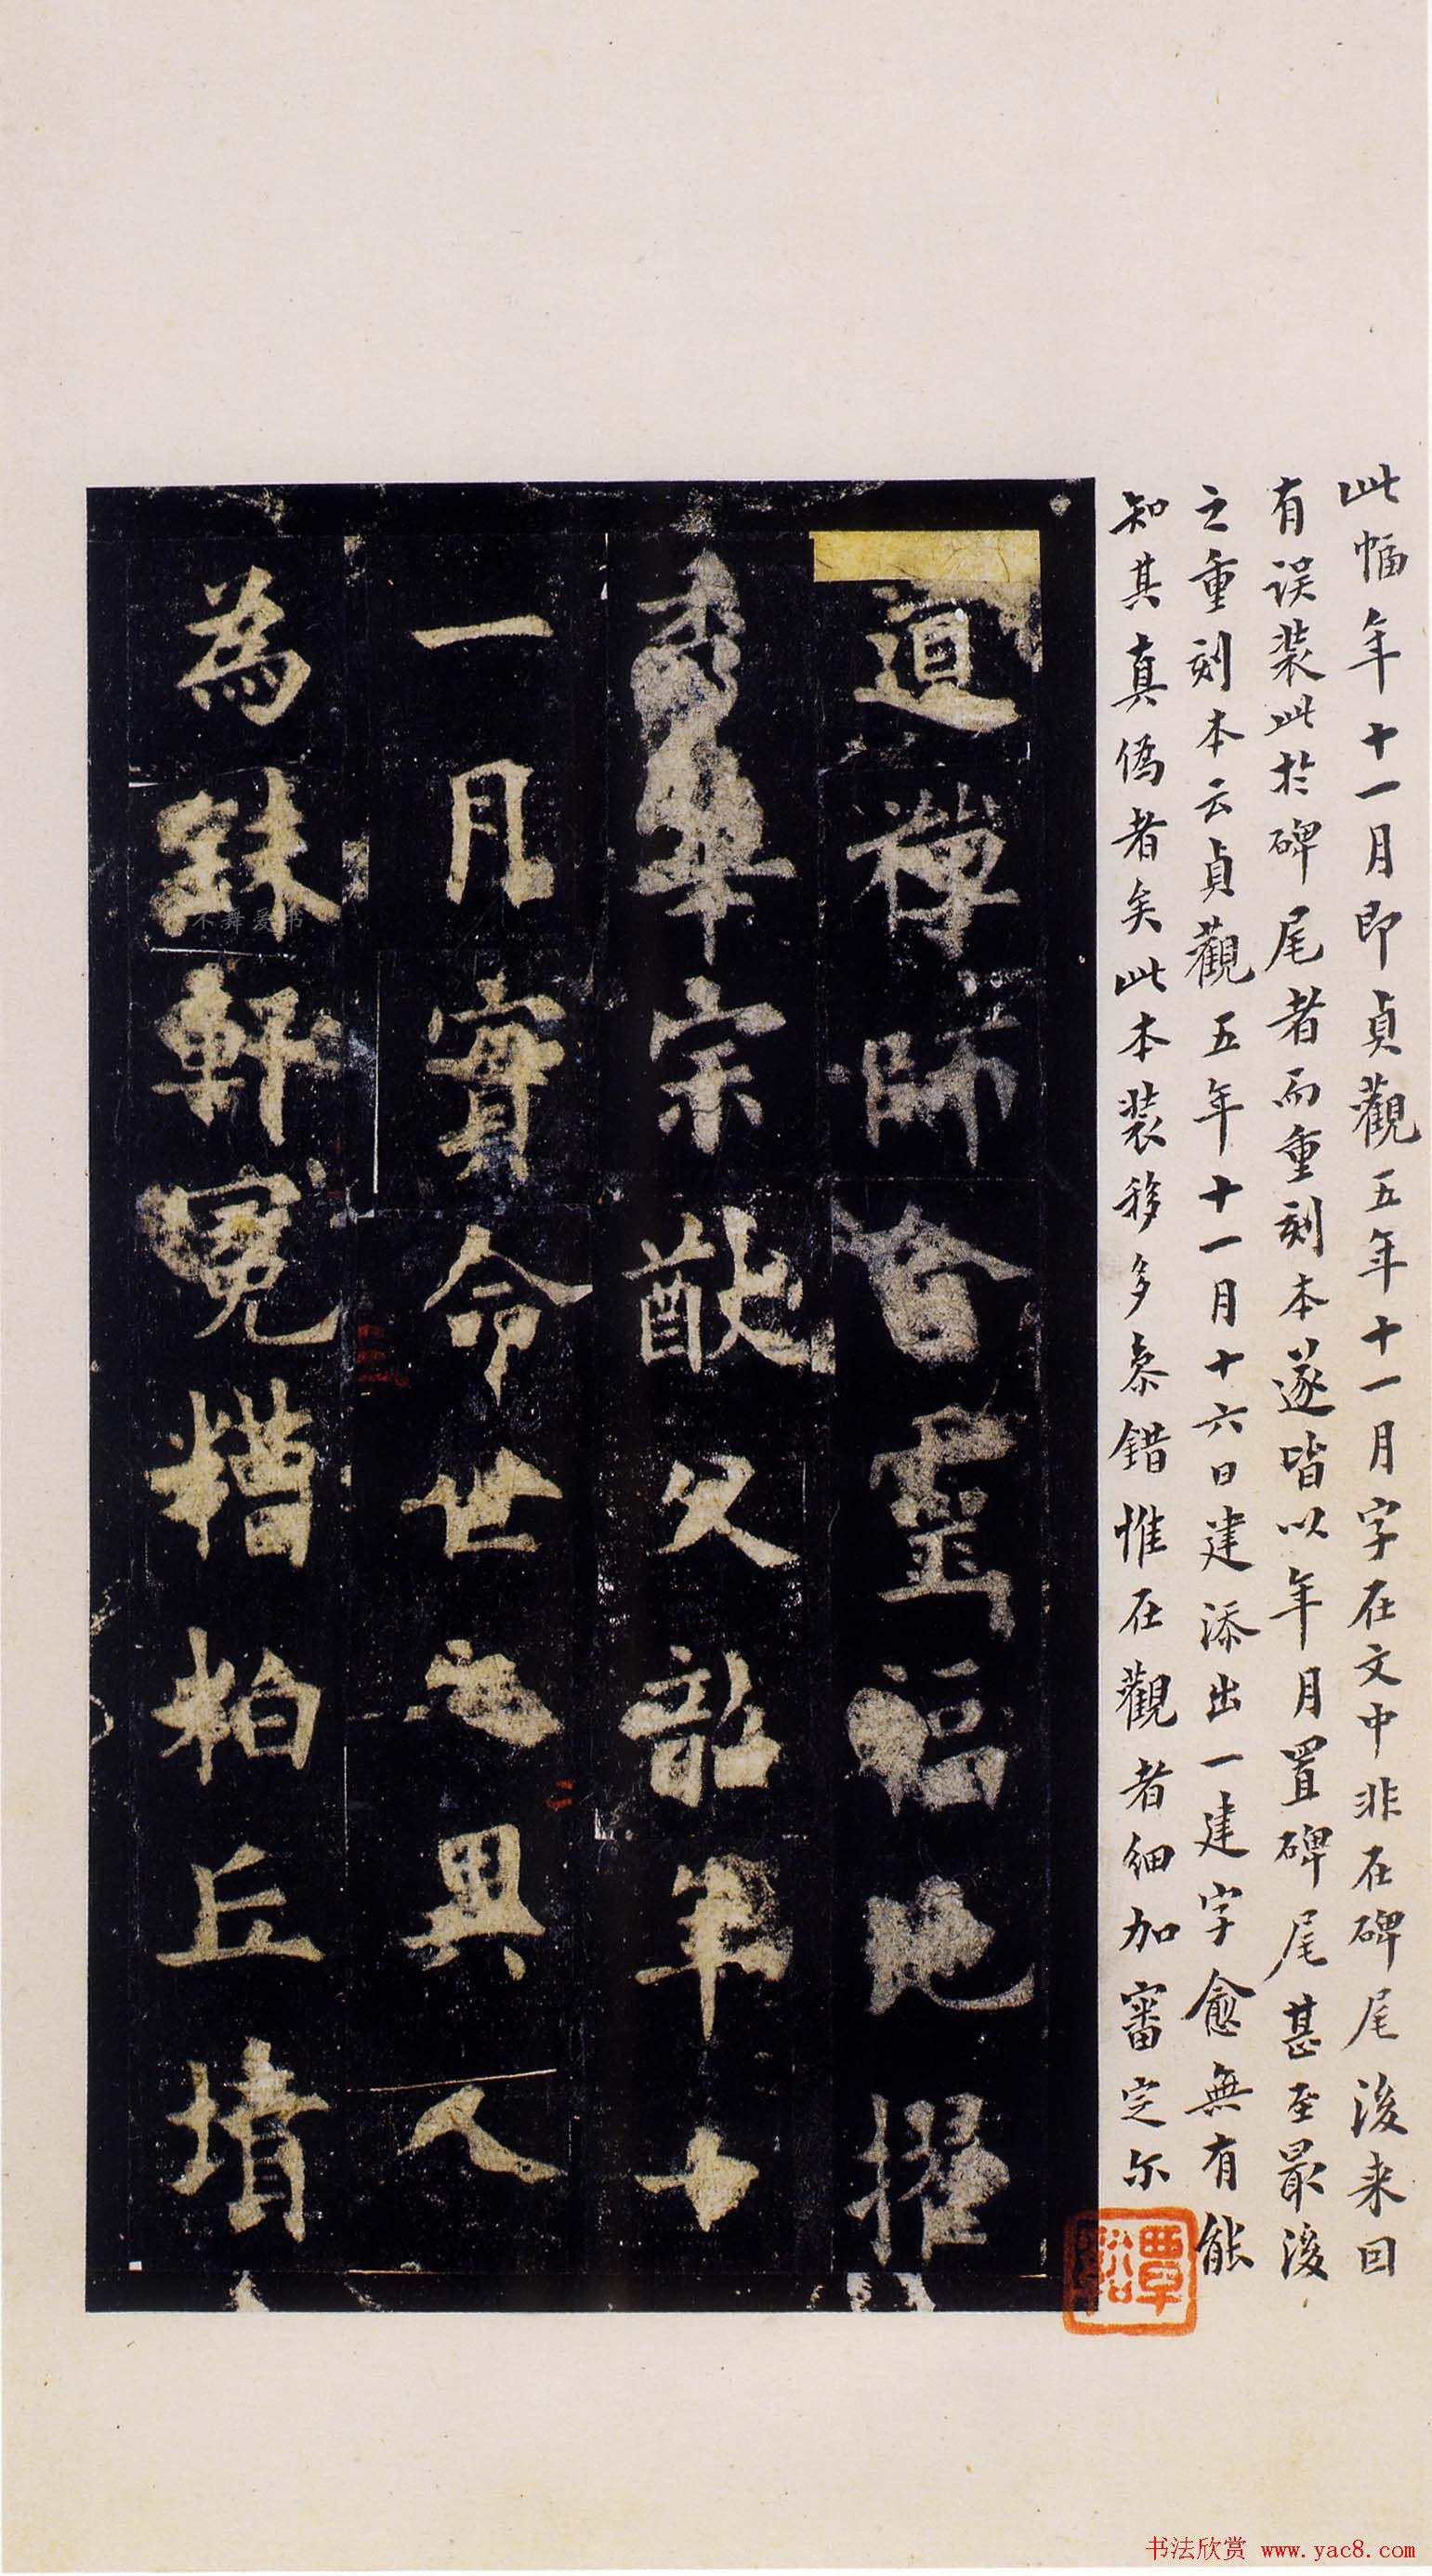 此幅年十一月即貞觀五年十一月字在文中非在碑尾後来回
有误装此於碑尾者而重刻本遂皆以年月置碑尾甚至最後
之重刻本云貞觀五年十一月十六日建添出一建字愈無有能
知其真僞者矣此本装移多叅錯惟在觀者細加審定尔
覃谿
道禅師昝靈福地擢
秀華宗猷父韶年十
一月實命世之異人
為銖軒冕糟粕丘墳
不舞爱书
书法欣赏 www.yac8.com